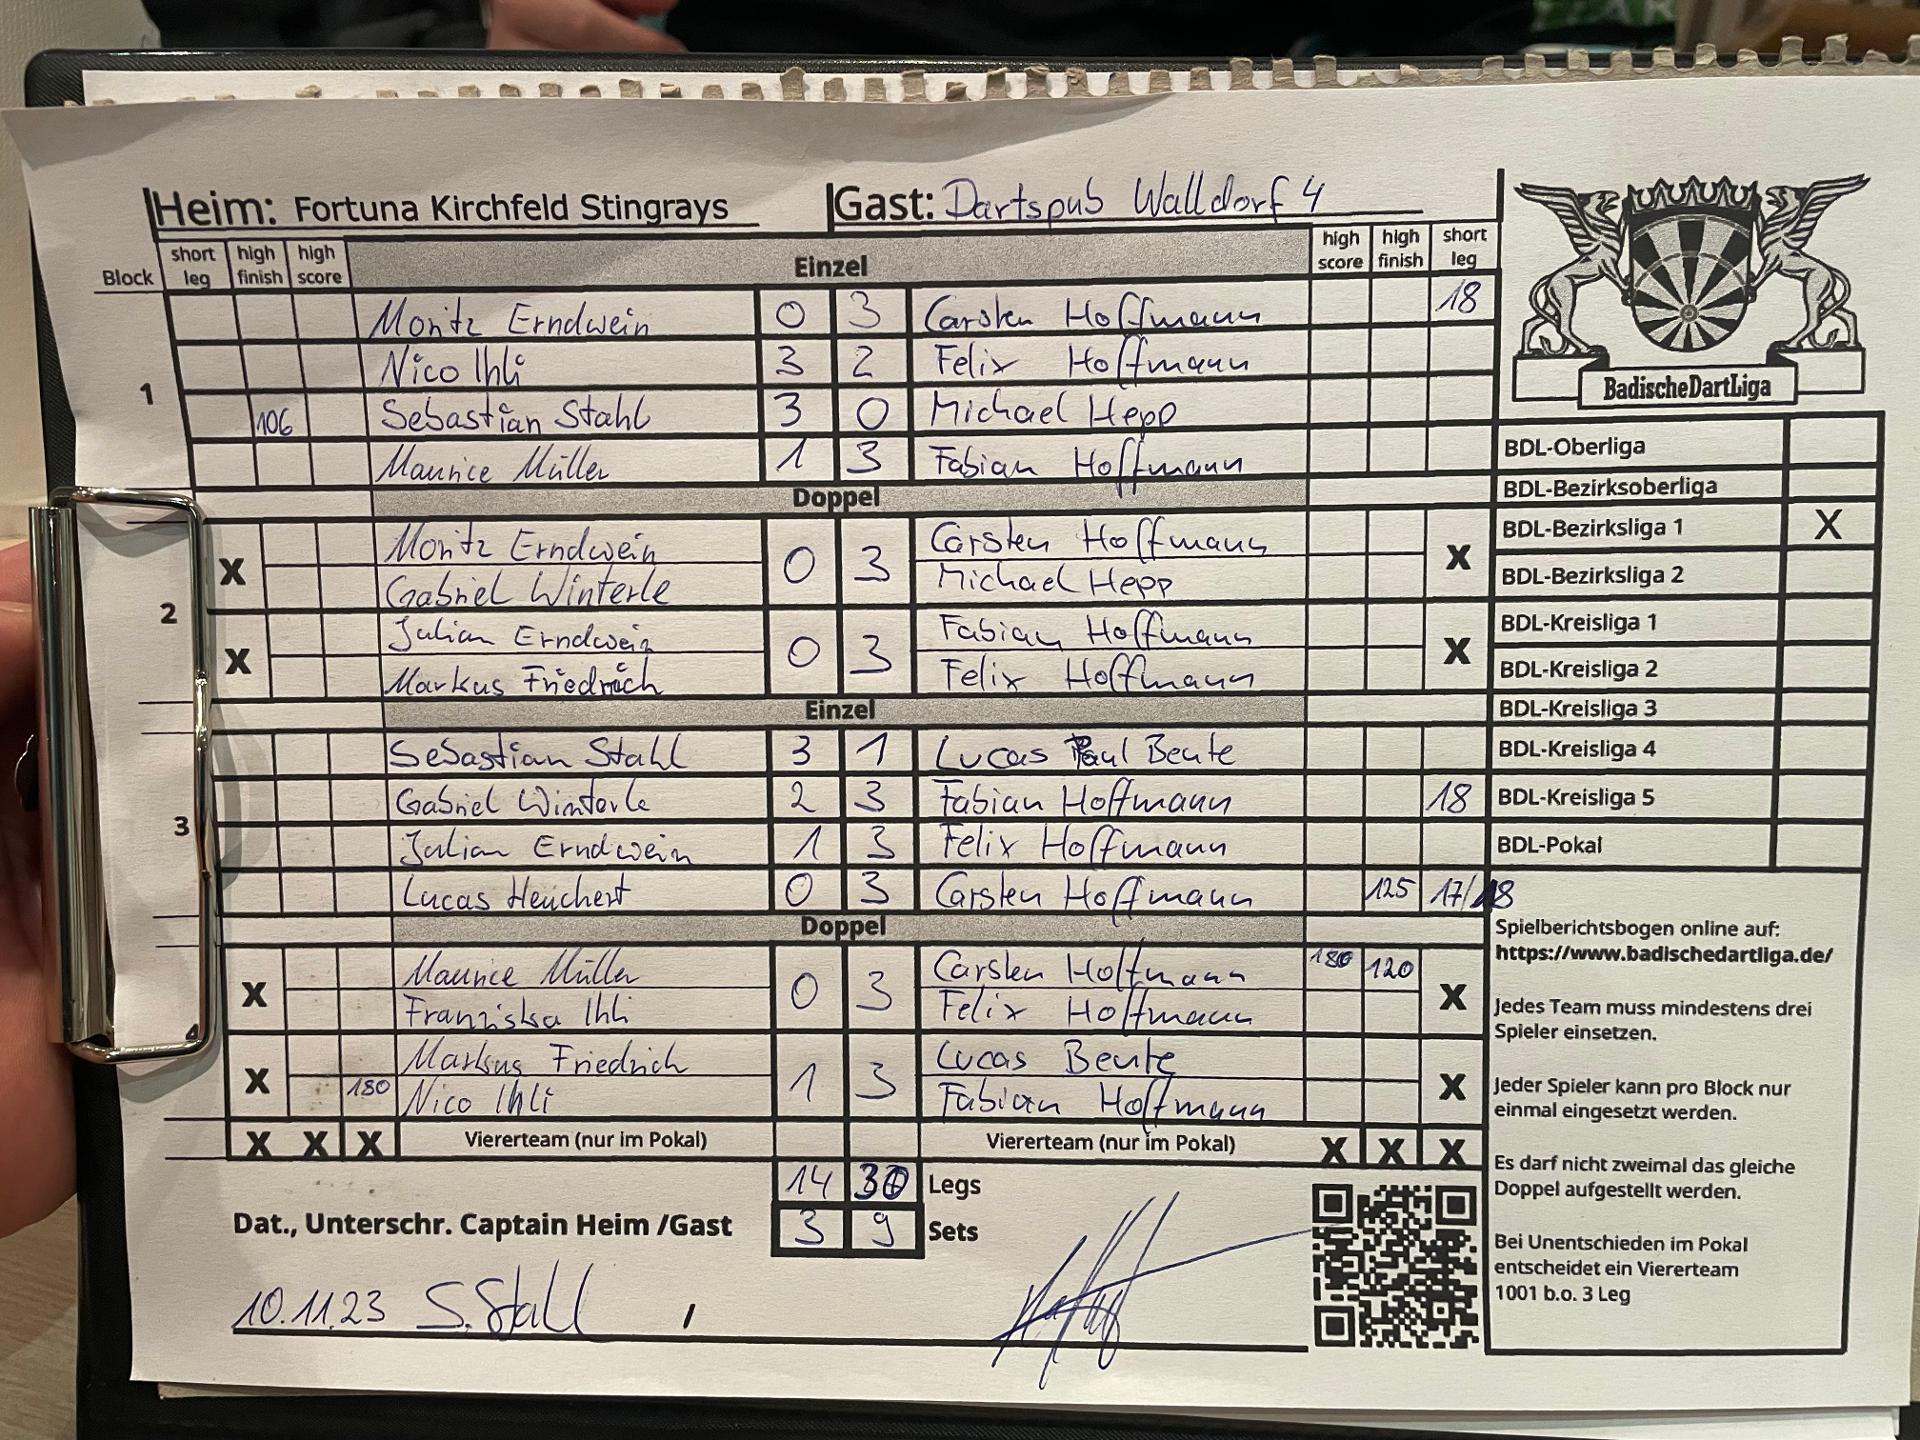 Heim: Fortuna Kirchfeld Stingrays Gast: Dartspub Walldorf 4
Block short leg high finish high score Einzel high score high finish short leg
1
Moritz Erndwein 0 3 Carsten Hoffmann 18
Nico Ihli 3 2 Felix Hoffmann
106 Sebastian Stahl 3 0 Michael Hepp
Maurice Müller 1 3 Fabian Hoffmann
Doppel
2
X Moritz Erndwein 0 3 Carsten Hoffmann X
Gabriel Winterle Michael Hepp
X Julian Erndwein 0 3 Fabian Hoffmann X
Markus Friedrich Felix Hoffmann
Einzel
3
Sebastian Stahl 3 1 Lucas Paul Beute
Gabriel Winterle 2 3 Fabian Hoffmann 18
Julian Erndwein 1 3 Felix Hoffmann
Lucas Heuchert 0 3 Carsten Hoffmann 125 17/18
Doppel
4
X Maurice Müller 0 3 Carsten Hoffmann 180 120 X
Franziska Ihli Felix Hoffmann
X Markus Friedrich 1 3 Lucas Beute X
180 Nico Ihli Fabian Hoffmann
X X X Viererteam (nur im Pokal) Viererteam (nur im Pokal) X X X
14 30 Legs
Dat., Unterschr. Captain Heim /Gast 3 9 Sets
10.11.23 S.Stall /
BadischeDartLiga
BDL-Oberliga
BDL-Bezirksoberliga
BDL-Bezirksliga 1 X
BDL-Bezirksliga 2
BDL-Kreisliga 1
BDL-Kreisliga 2
BDL-Kreisliga 3
BDL-Kreisliga 4
BDL-Kreisliga 5
BDL-Pokal
Spielberichtsbogen online auf:
https://www.badischedartliga.de/
Jedes Team muss mindestens drei
Spieler einsetzen.
Jeder Spieler kann pro Block nur
einmal eingesetzt werden.
Es darf nicht zweimal das gleiche
Doppel aufgestellt werden.
Bei Unentschieden im Pokal
entscheidet ein Viererteam
1001 b.o. 3 Leg